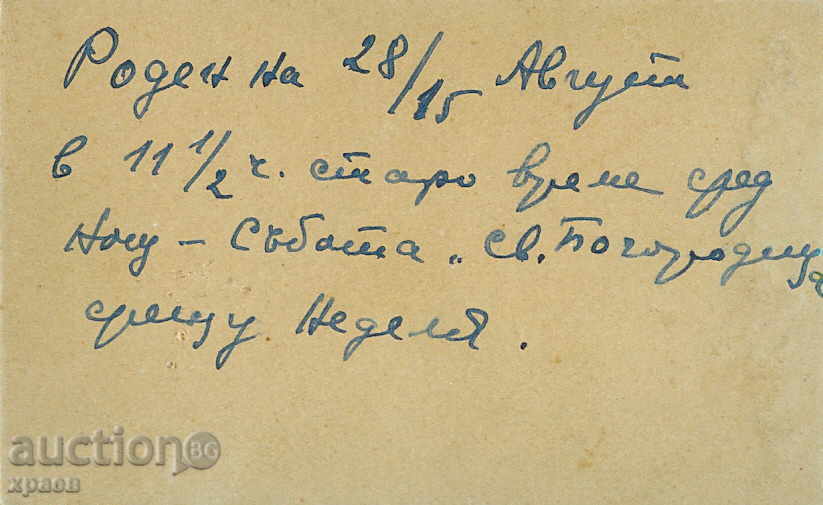 Роден на 28/15 Август
в 11 1/2 ч. старо време сред
нощ – Събота „ Св. Богородица
срещу Неделя.
auction BG
храов